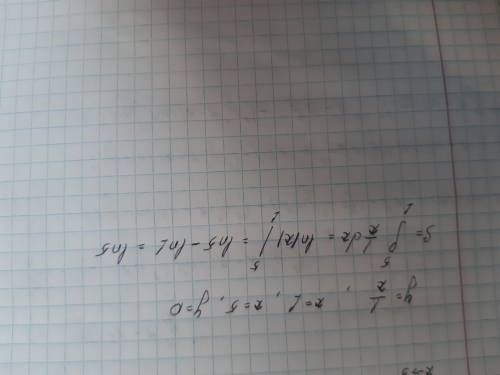 y = 1/x, x=1, x=5, y=0
S = ∫₁⁵ 1/x dx = ln|x| |₁⁵ = ln5 - ln1 = ln5